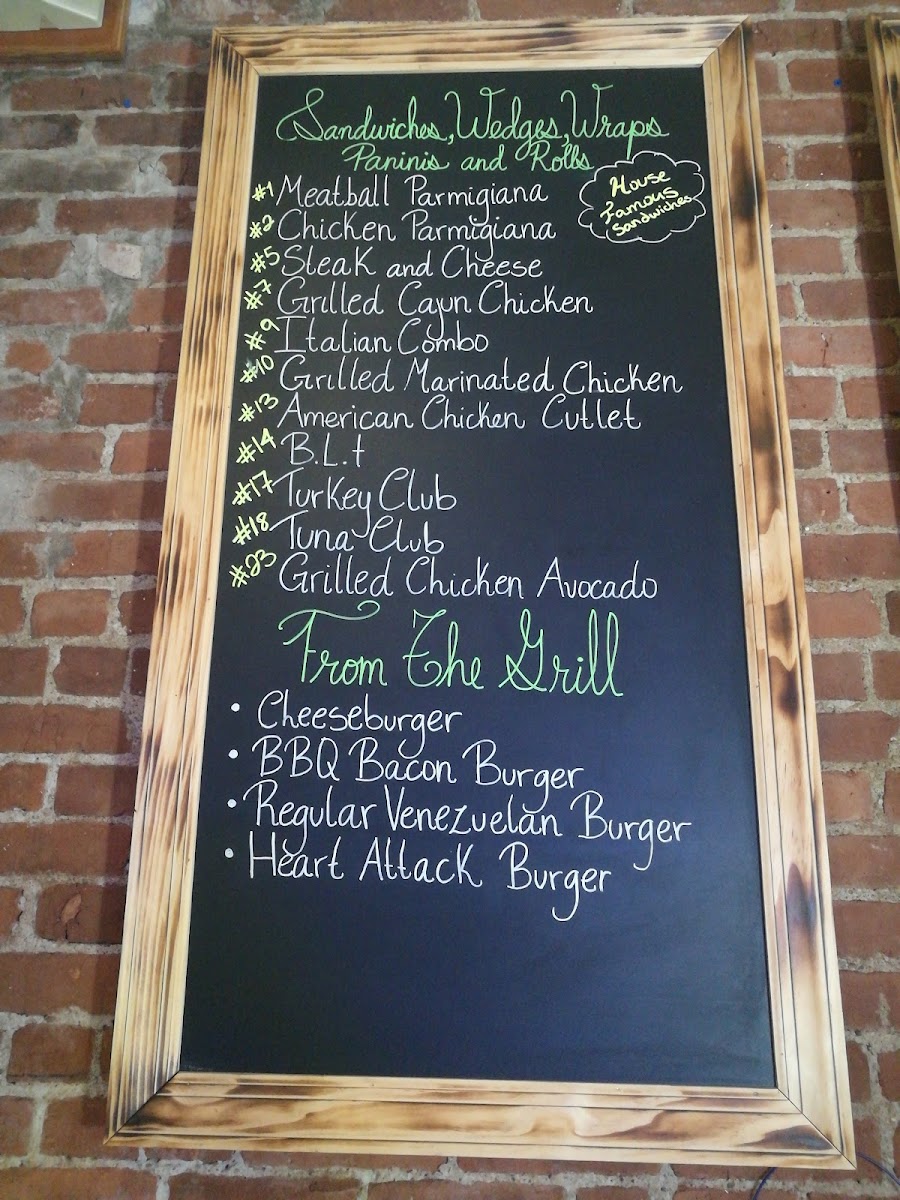 Sandwiches, Wedges, Wraps
Paninis and Rolls
House
Famous
Sandwiches
#1 Meatball Parmigiana
#2 Chicken Parmigiana
#5 Steak and Cheese
#7 Grilled Cajun Chicken
#9 Italian Combo
#10 Grilled Marinated Chicken
#13 American Chicken Cutlet
#14 B.L.t
#17 Turkey Club
#18 Tuna Club
#23 Grilled Chicken Avocado
From The Grill
• Cheeseburger
• BBQ Bacon Burger
• Regular Venezuelan Burger
• Heart Attack Burger